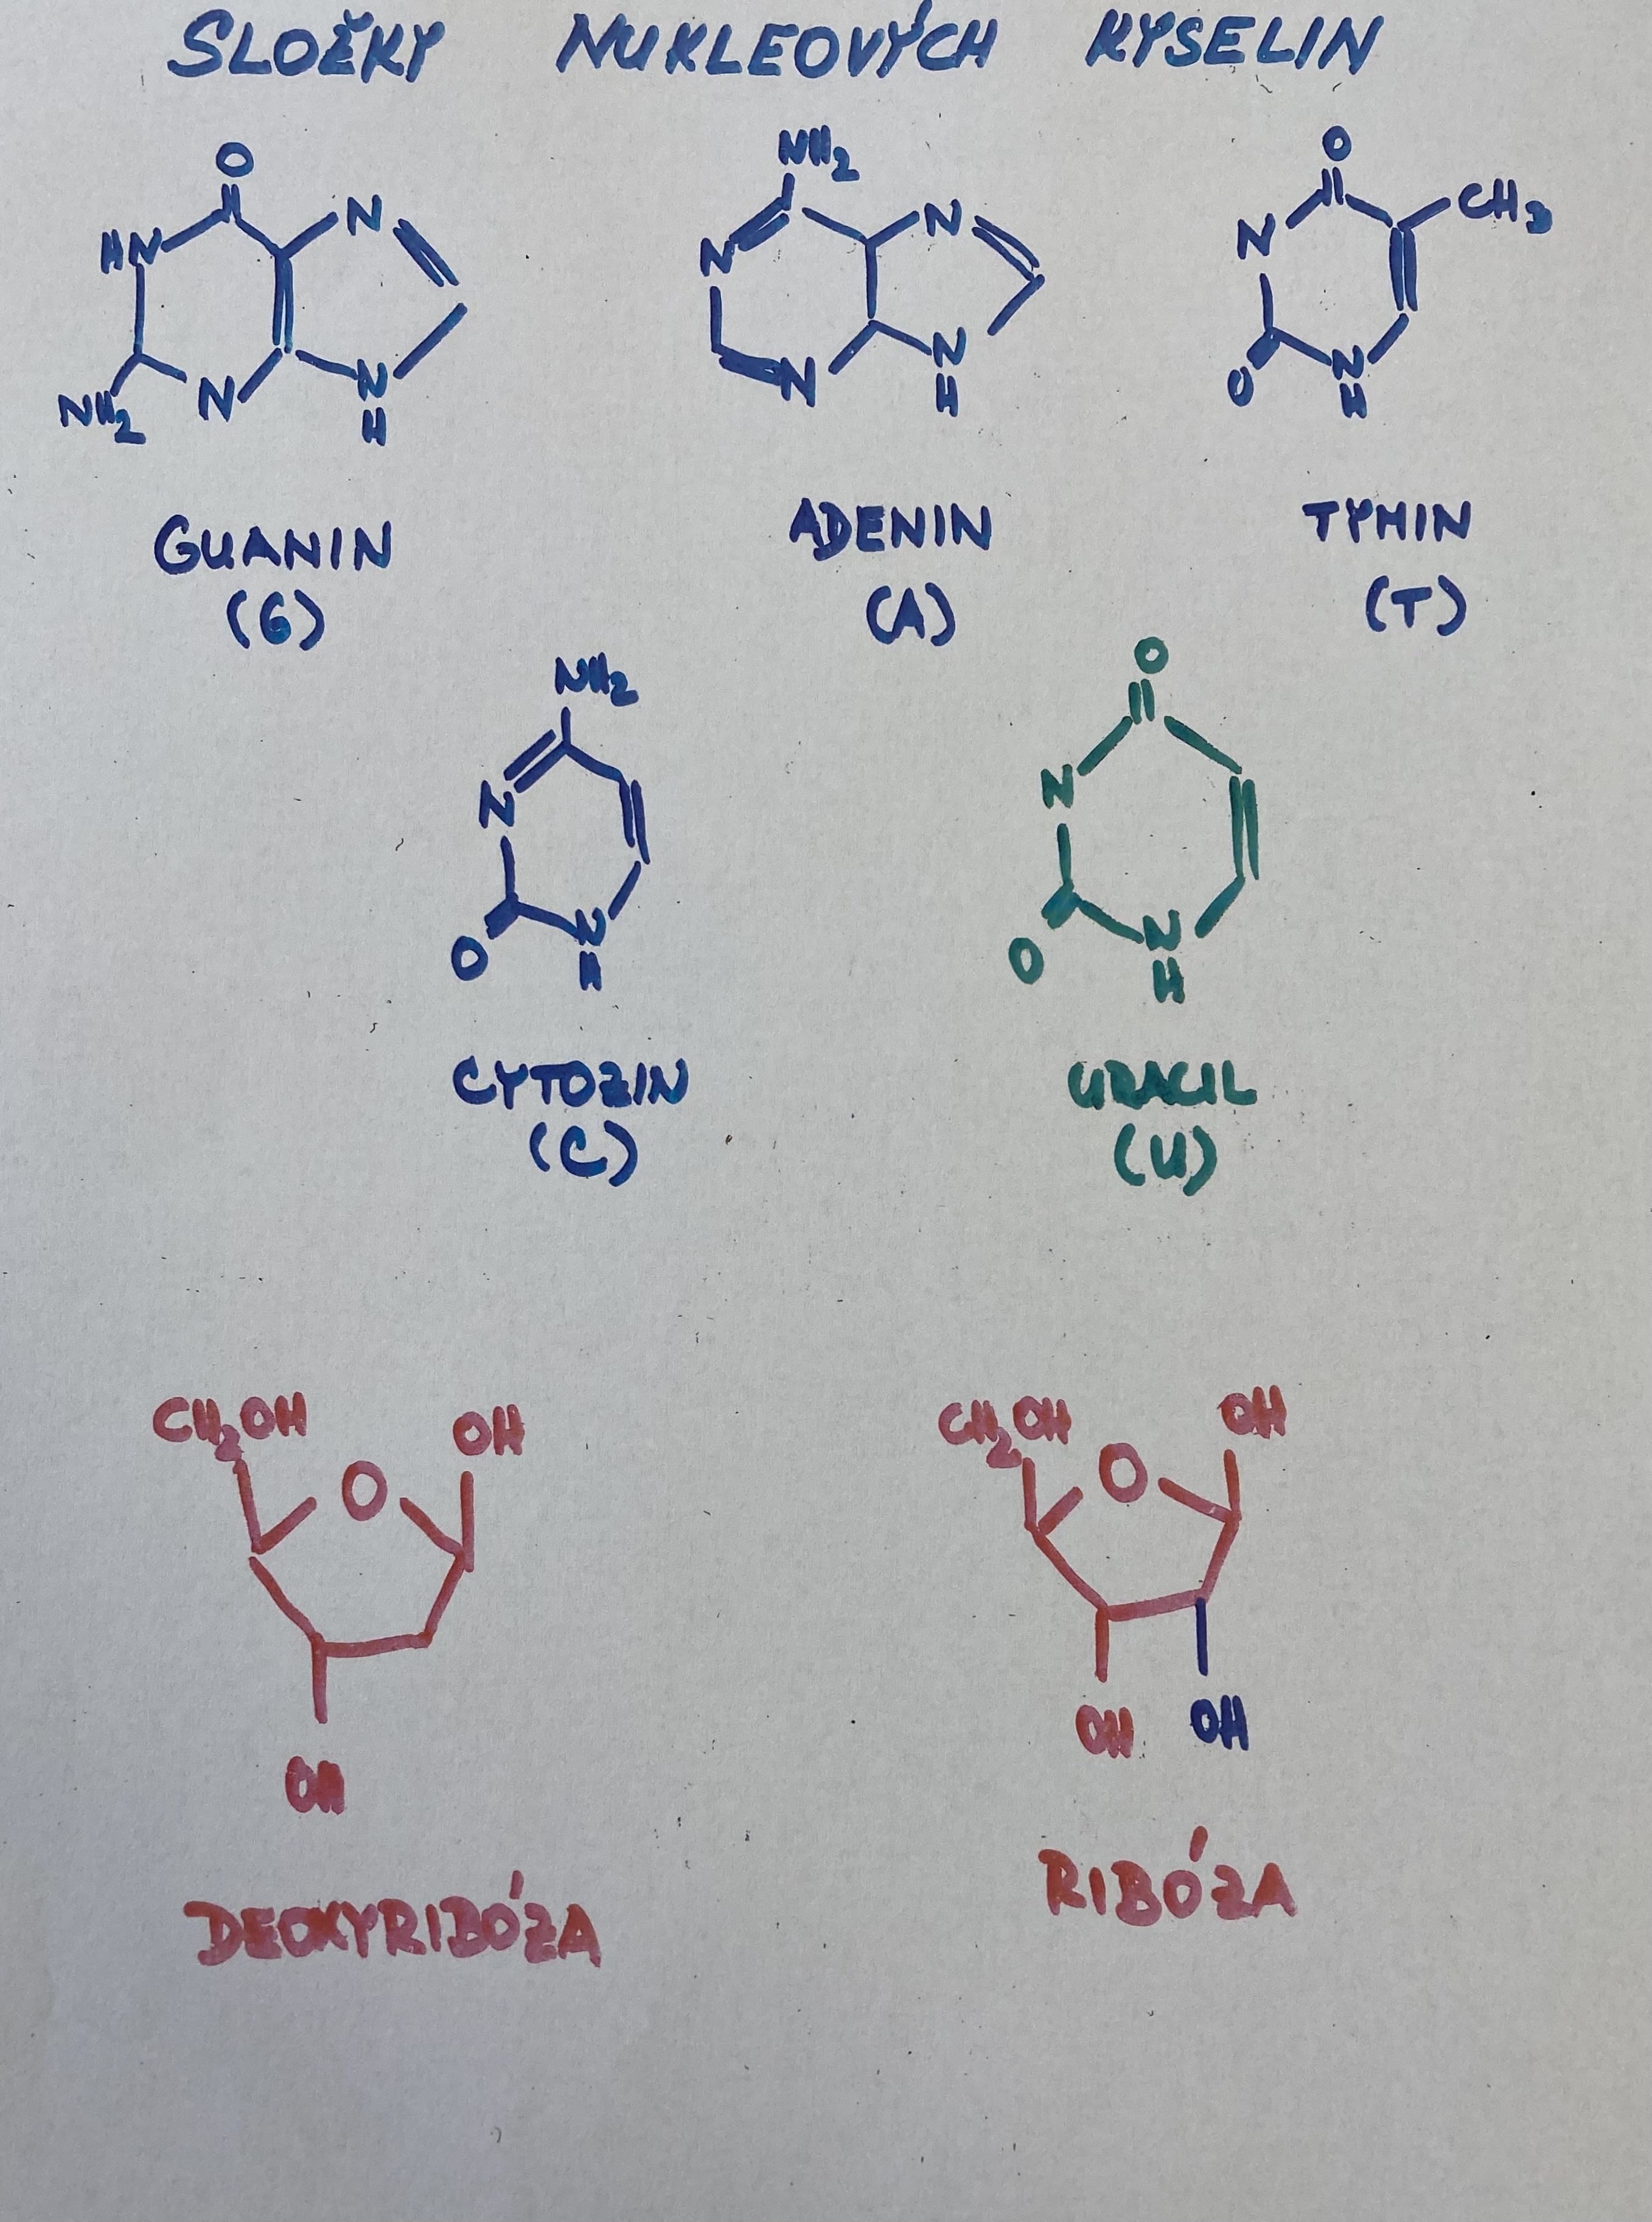 SLOŽKY NUKLEOVÝCH KYSELIN
O
HN
N
NH2
N
N
H
GUANIN
(G)
NH2
N
N
N
N
H
ADENIN
(A)
O
CH3
N
O
N
H
TYMIN
(T)
NH2
N
O
N
H
CYTOZIN
(C)
O
N
O
N
H
URACIL
(U)
CH2OH
O
OH
OH
DEOXYRIBÓZA
CH2OH
O
OH
OH
OH
RIBÓZA